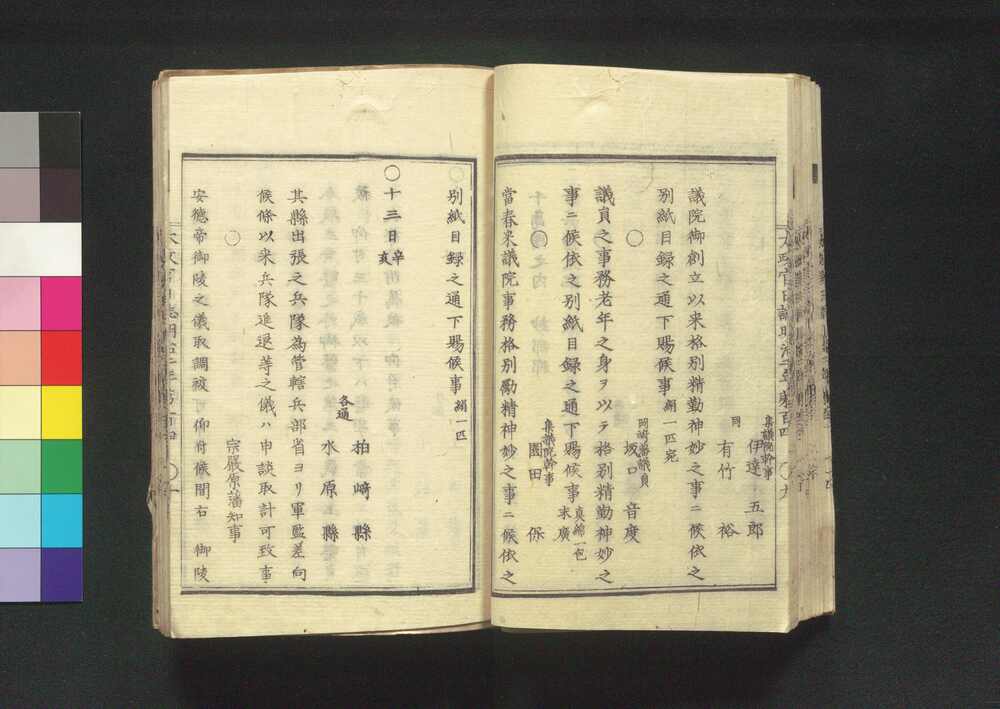 集議院幹事
伊達五郎
同
有竹裕
議院御創立以来格別精勤神妙之事ニ候依之
別紙目録之通下賜候事 絹一匹宛
○
岡崎藩議員
坂口音度
議員之事務老年之身ヲ以テ格別精勤神妙之
事ニ候依之別紙目録之通下賜候事 真綿一包 末廣
○
集議院幹事
園田保
當春来議院事務格別勵精神妙之事ニ候依之
別紙目録之通下賜候事 絹一匹
○十三日 辛亥
各通
柏崎縣
水原縣
其縣出張之兵隊為管轄兵部省ヨリ軍監差向
候條以来兵隊進退等之儀ハ申談取計可致事
○
宗嚴原藩知事
安徳帝御陵之儀取調被可仰付候間右 御陵